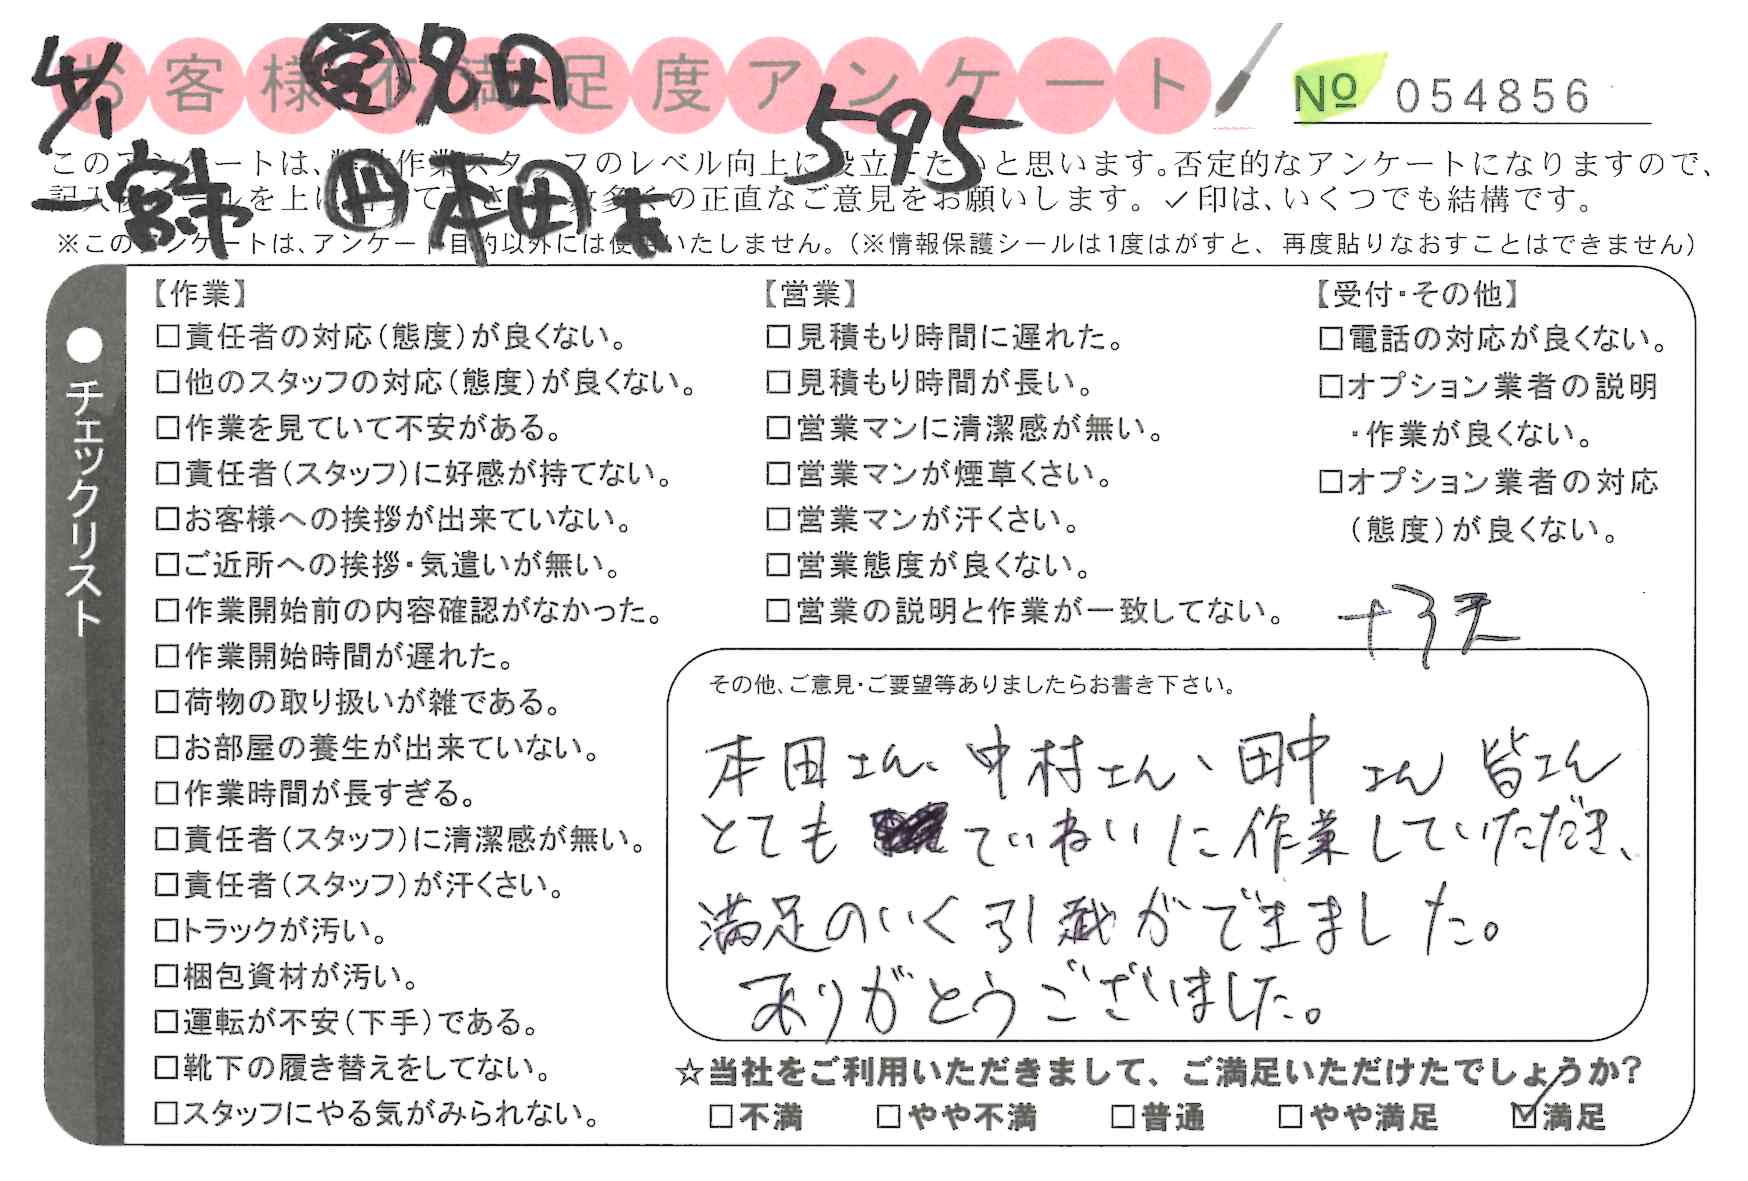 お客様不満足度アンケート
№ 054856
4/1 営 多田
595
一宮市 作 本田
このアンケートは、弊社作業スタッフのレベル向上に役立てたいと思います。否定的なアンケートになりますので、
記入後シールを上に貼って下さい。数多くの正直なご意見をお願いします。✓印は、いくつでも結構です。
※このアンケートは、アンケート目的以外には使用いたしません。(※情報保護シールは1度はがすと、再度貼りなおすことはできません)
●チェックリスト
【作業】
□責任者の対応(態度)が良くない。
□他のスタッフの対応(態度)が良くない。
□作業を見ていて不安がある。
□責任者(スタッフ)に好感が持てない。
□お客様への挨拶が出来ていない。
□ご近所への挨拶・気遣いが無い。
□作業開始前の内容確認がなかった。
□作業開始時間が遅れた。
□荷物の取り扱いが雑である。
□お部屋の養生が出来ていない。
□作業時間が長すぎる。
□責任者(スタッフ)に清潔感が無い。
□責任者(スタッフ)が汗くさい。
□トラックが汚い。
□梱包資材が汚い。
□運転が不安(下手)である。
□靴下の履き替えをしてない。
□スタッフにやる気がみられない。
【営業】
□見積もり時間に遅れた。
□見積もり時間が長い。
□営業マンに清潔感が無い。
□営業マンが煙草くさい。
□営業マンが汗くさい。
□営業態度が良くない。
□営業の説明と作業が一致してない。
【受付・その他】
□電話の対応が良くない。
□オプション業者の説明
・作業が良くない。
□オプション業者の対応
(態度)が良くない。
+3天
その他、ご意見・ご要望等ありましたらお書き下さい。
本田さん、中村さん、田中さん 皆さん
とても ていねいに作業していただき、
満足のいく引越ができました。
ありがとうございました。
☆当社をご利用いただきまして、ご満足いただけたでしょうか?
□不満 □やや不満 □普通 □やや満足 ☑満足